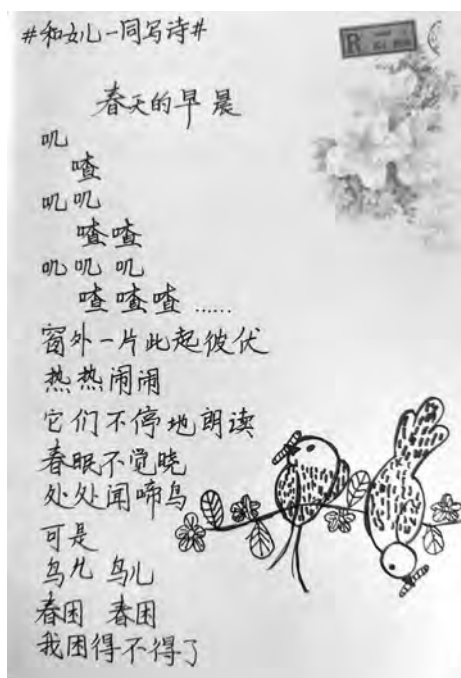 #和女儿一同写诗#
R
春天的早晨
叽
喳
叽叽
喳喳
叽叽叽
喳喳喳……
窗外一片此起彼伏
热热闹闹
它们不停地朗读
春眠不觉晓
处处闻啼鸟
可是
鸟儿 鸟儿
春困 春困
我困得不得了